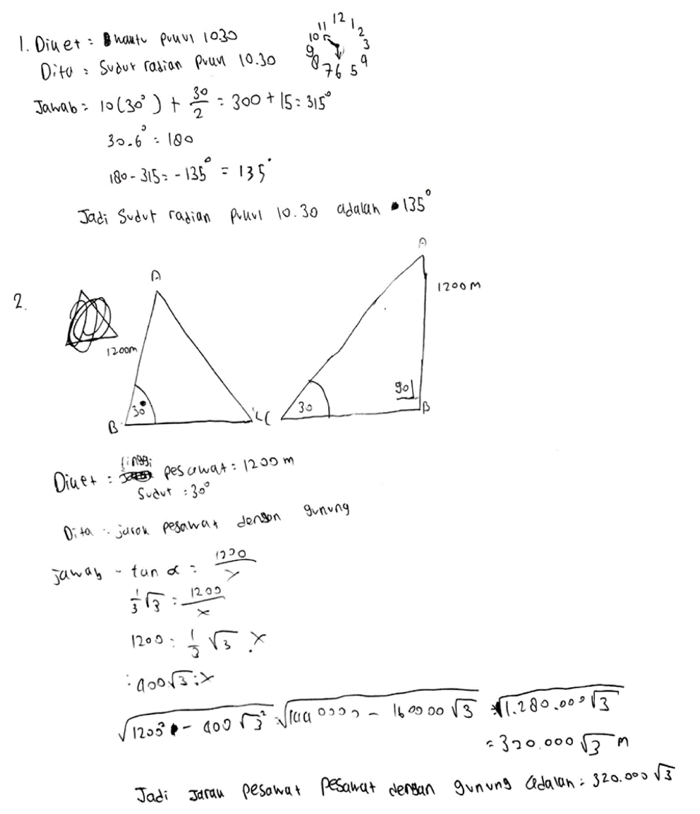 1. Diket = hantu pukul 1030
Dita = Sudut radian pukul 10.30
12
11
1
10
2
9
3
8
4
7 6 5
Jawab = 10(30°) + 30/2 = 300 + 15 = 315°
30.6° = 180
180 - 315 = -135° = 135°
Jadi Sudut radian pukul 10.30 adalah 135°
2.
A
1200m
30°
B
C
A
1200 M
90
30
C
B
Diket = tinggi pesawat = 1200 m
Sudut = 30°
Dita = jarak pesawat dengan gunung
jawab - tan α = 1200/x
1/3 √3 = 1200/x
1200 = 1/3 √3 . x
= 400√3 = x
√1200² - 400√3² = √1440000 - 160000√3 = √1.280.000√3
= 320.000√3 M
Jadi Jarak pesawat pesawat dengan gunung adalah = 320.000√3